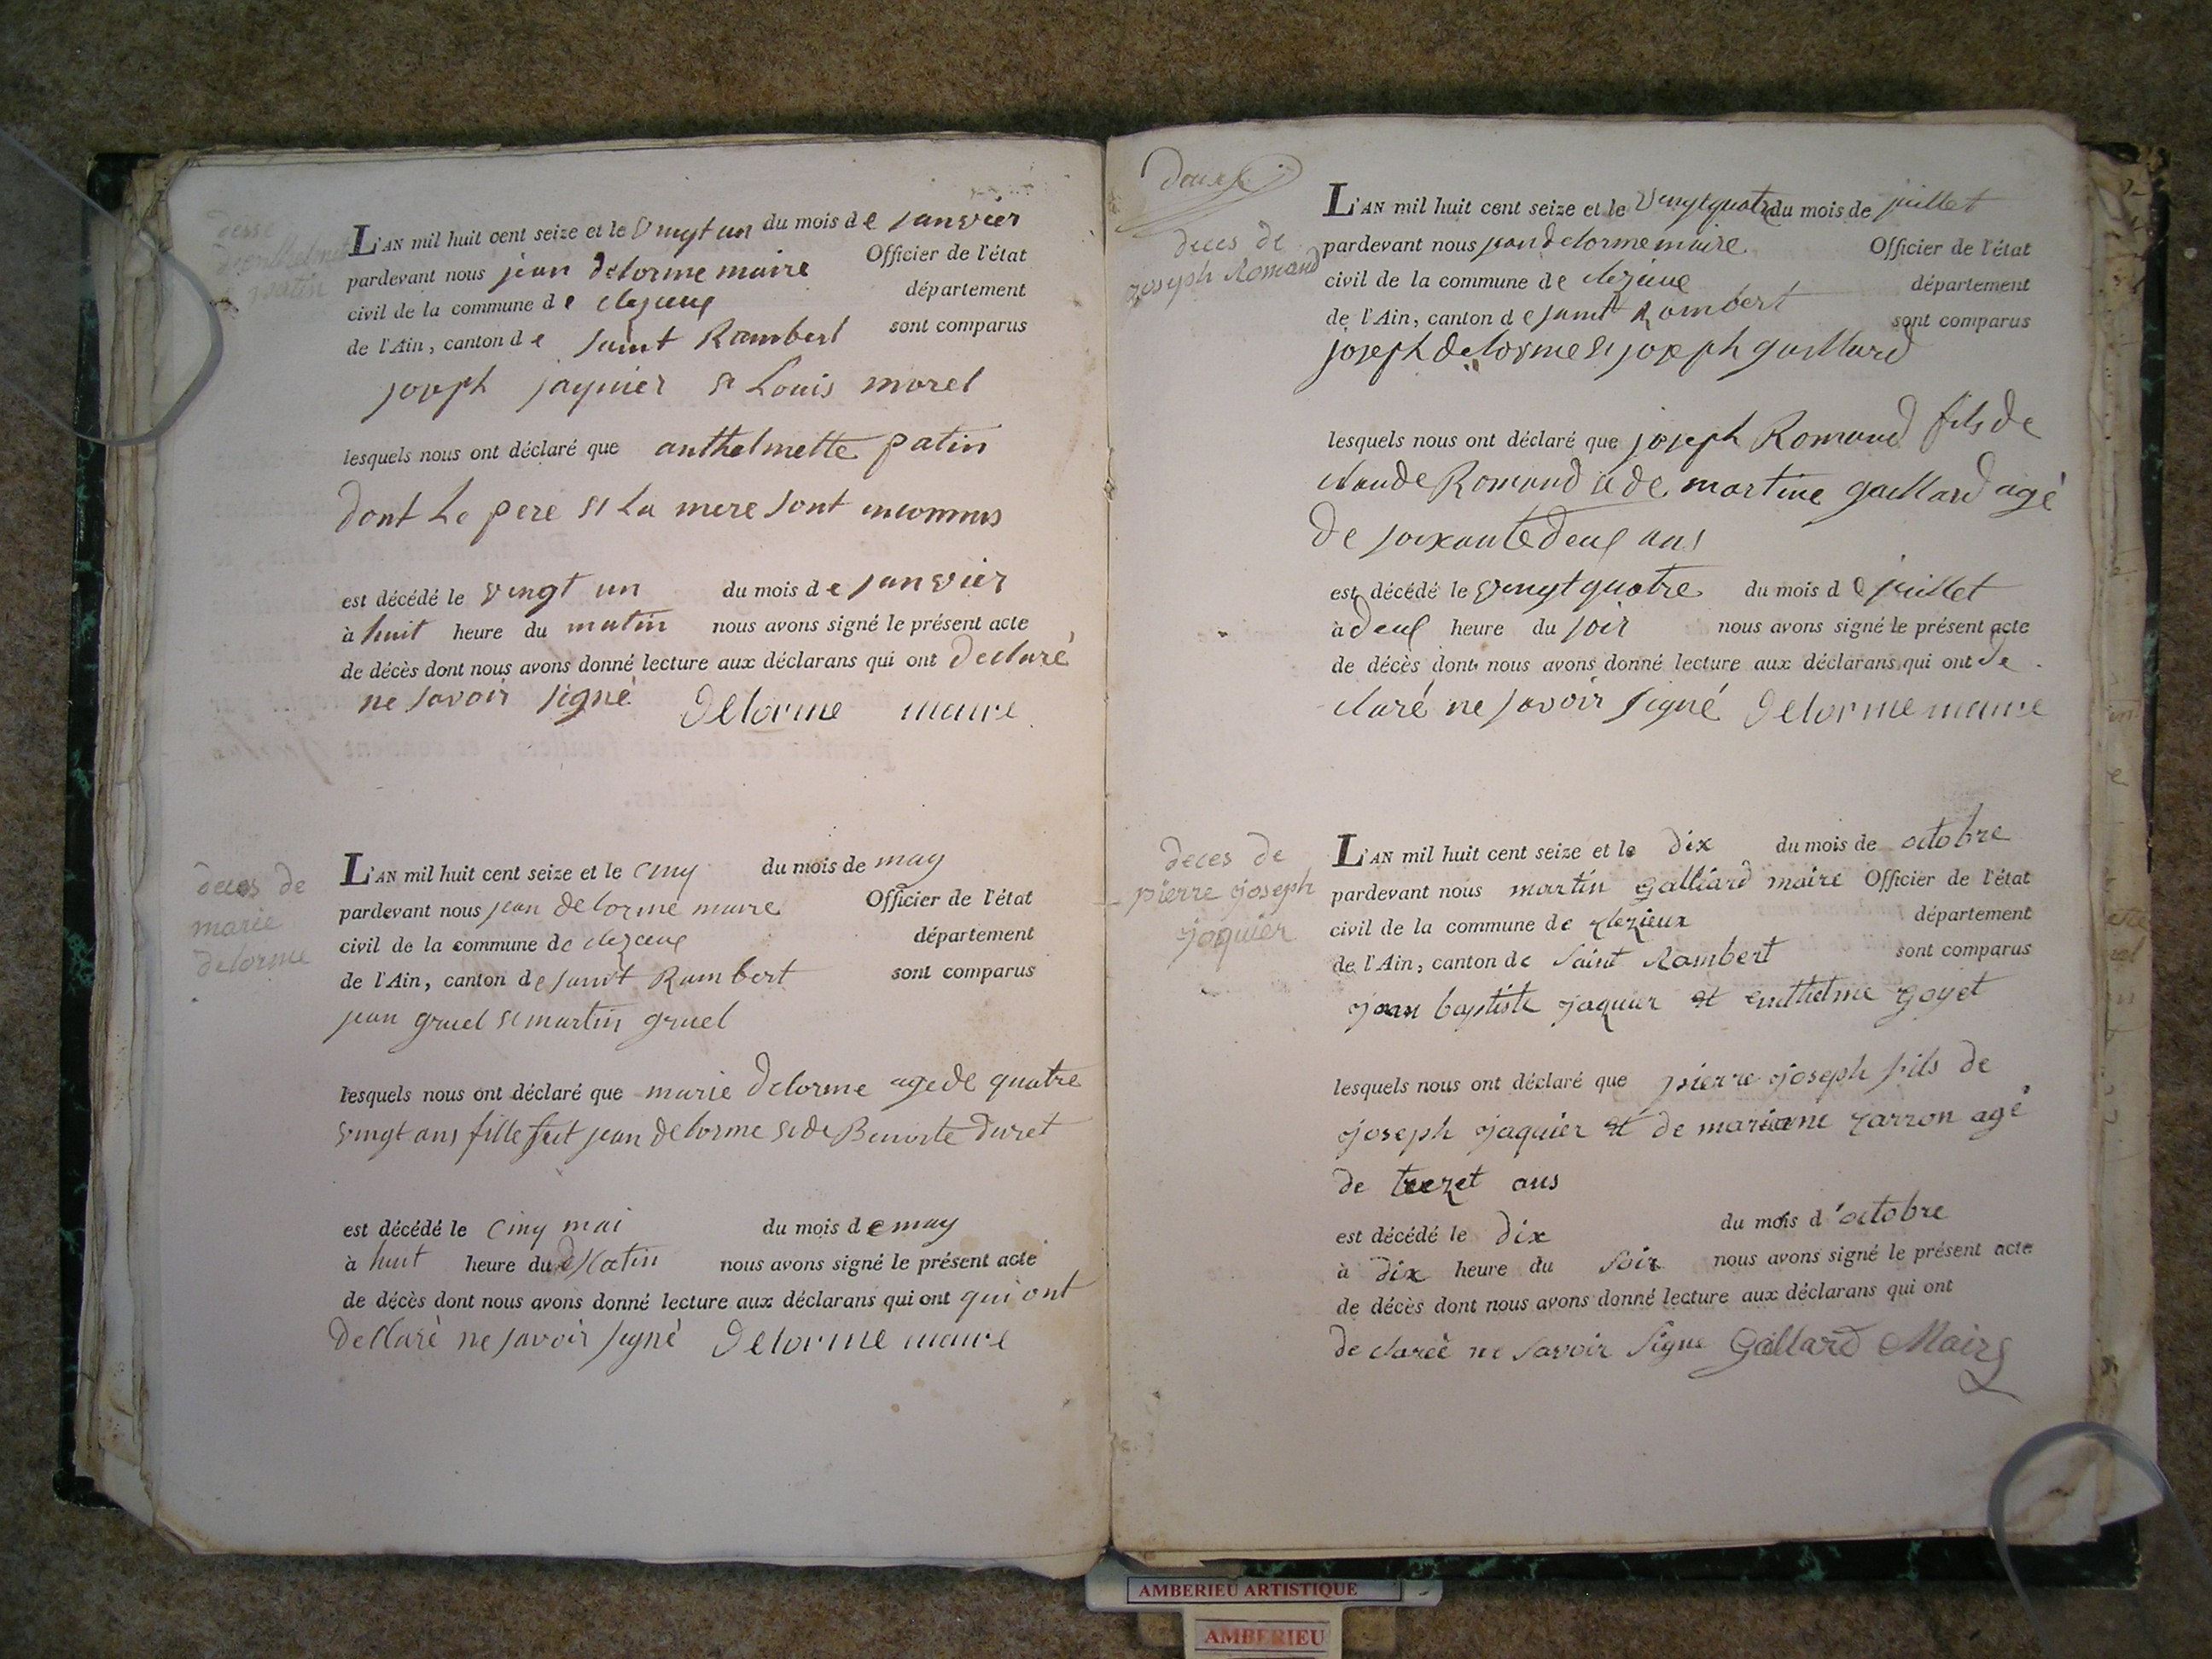 desse
danthelmette
patin
L'AN mil huit cent seize et le vingt un du mois de janvier
pardevant nous jean delorme maire Officier de l'état
civil de la commune de clezieux département
de l'Ain, canton de saint Rambert sont comparus
joseph jaquier et Louis morel
lesquels nous ont déclaré que anthelmette patin
dont le pere et la mere sont inconnus
est décédé le vingt un du mois de janvier
à huit heure du matin nous avons signé le présent acte
de décès dont nous avons donné lecture aux déclarans qui ont declaré
ne savoir signé Delorme maire
deces de
marie
delorme
L'AN mil huit cent seize et le cinq du mois de may
pardevant nous jean delorme maire Officier de l'état
civil de la commune de clezieux département
de l'Ain, canton de saint Rambert sont comparus
jean gruel et martin gruel
lesquels nous ont déclaré que marie delorme agede quatre
vingt ans fille feit jean delorme et de Benoite duret
est décédé le cinq mai du mois de may
à huit heure du Matin nous avons signé le présent acte
de décès dont nous avons donné lecture aux déclarans qui ont qui ont
declaré ne savoir signé Delorme maire
deces de
joseph Romand
L'AN mil huit cent seize et le vingtquatre du mois de juillet
pardevant nous jean delorme maire Officier de l'état
civil de la commune de clezieux département
de l'Ain, canton de saint Rambert sont comparus
joseph delorme et joseph gaillard
lesquels nous ont déclaré que joseph Romand fils de
claude Romand et de martine gaillard agé
de soixante deux ans
est décédé le vingt quatre du mois de juillet
à deux heure du soir nous avons signé le présent acte
de décès dont nous avons donné lecture aux déclarans qui ont de
claré ne savoir signé Delorme maire
deces de
pierre joseph
jaquier
L'AN mil huit cent seize et le dix du mois de octobre
pardevant nous martin galliard maire Officier de l'état
civil de la commune de clezieux département
de l'Ain, canton de saint Rambert sont comparus
jean baptiste jaquier et enthelme goyet
lesquels nous ont déclaré que pierre joseph fils de
joseph jaquier et de mariane carron agé
de trezet ans
est décédé le dix du mois d'octobre
à dix heure du soir nous avons signé le présent acte
de décès dont nous avons donné lecture aux déclarans qui ont
de clareé ne savoir signe Gallard Maire
AMBERIEU ARTISTIQUE
AMBERIEU